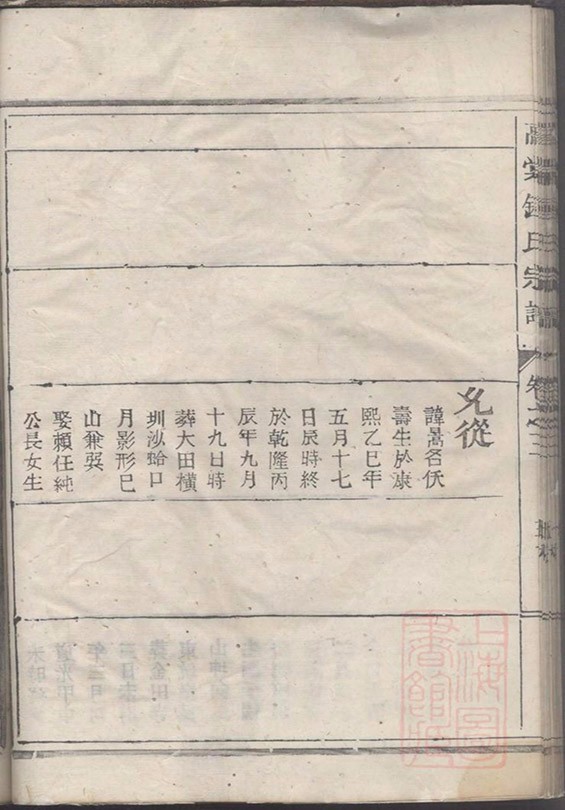 鍾氏宗譜
允從
諱暠名伏
壽生於康
熙乙巳年
五月十七
日辰時終
於乾隆丙
辰年九月
十九日時
葬大田橫
圳沙蛤口
月影形巳
山兼巽
娶賴任純
公長女生
上海圖書館藏